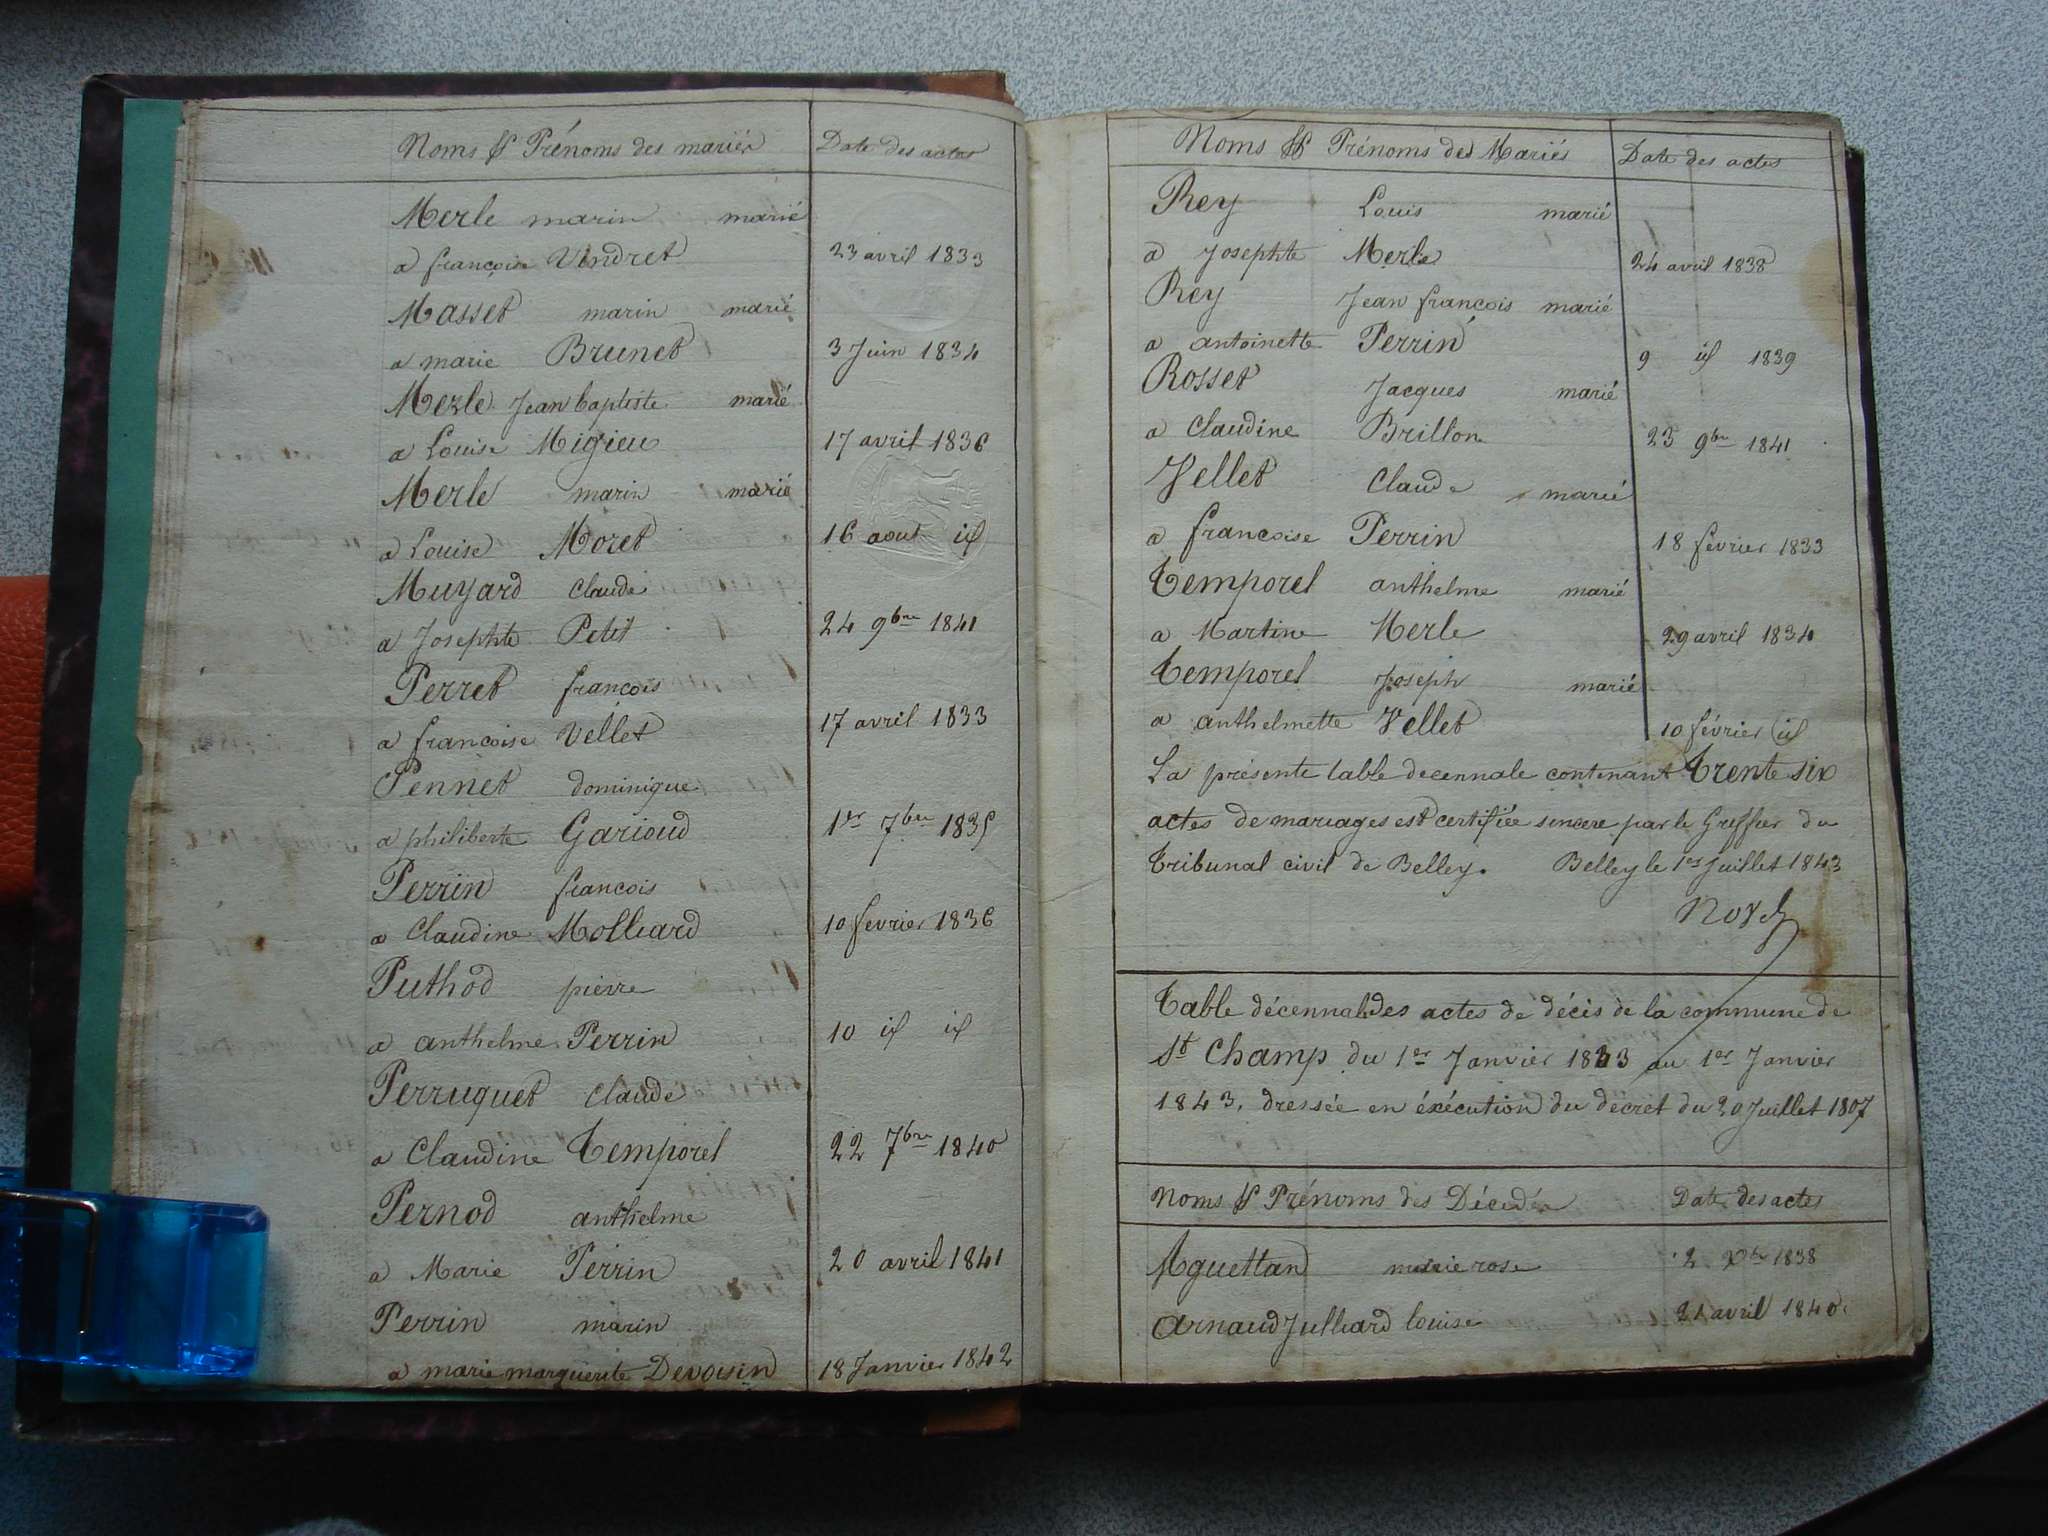 Noms & Prénoms des mariés Date des actes
Merle marin marié
a françoise Vindret 23 avril 1833
Masset marin marié
a marie Brunet 3 Juin 1834
Merle Jean baptiste marié
a Louise Migieu 17 avril 1836
Merle marin marié
a Louise Moret 16 aout id
Muyard Claude
a Josephte Petit 24 9bre 1841
Perret françois
a françoise Vellet 17 avril 1833
Pennet dominique
a philiberte Garioud 1er 7bre 1835
Perrin francois
a Claudine Molliard 10 fevrier 1836
Puthod pierre
a anthelme Perrin 10 id id
Perruquet Claude
a Claudine Temporel 22 7bre 1840
Pernod anthelme
a Marie Perrin 20 avril 1841
Perrin marin
a marie marguerite Devoisin 18 Janvier 1842
Noms & Prénoms des Mariés Date des actes
Rey Louis marié
a Josephte Merle 24 avril 1838
Rey Jean françois marié
a antoinette Perrin 9 id 1839
Rosset Jacques marié
a Claudine Brillon 23 9bre 1841
Vellet Claude marié
a francoise Perrin 18 fevrier 1833
Temporel anthelme marié
a Martine Merle 29 avril 1834
Temporel Joseph marié
a anthelmette Vellet 10 février id
La présente table decennale contenant Trente six
actes de mariages est certifiée sincere par le Greffier du
Tribunal civil de Belley. Belley le 1er Juillet 1843
Table décennale des actes de décès de la commune de
St Champ du 1er Janvier 1833 au 1er Janvier
1843, dressée en éxécution du décret du 20 Juillet 1807
Noms & Prénoms des Décédés Date des actes
Aguettand marie rose 2 Xbre 1838
Arnaud Julliard louise 21 avril 1840